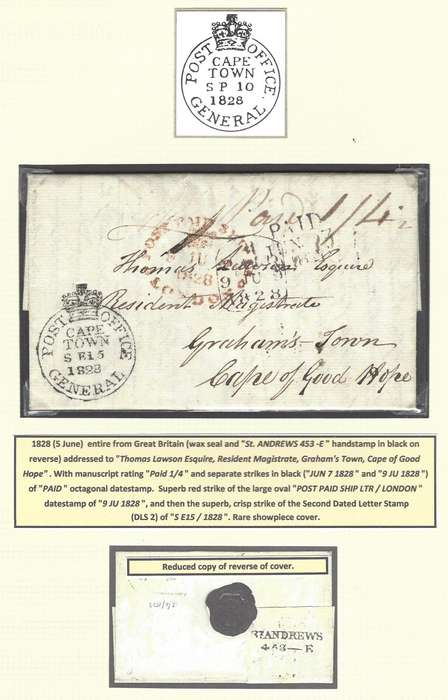 POST OFFICE
CAPE
TOWN
SP 10
1828
GENERAL
Paid 1/4
POST PAID SHIP
9 JU
1828
LONDON
PAID
JUN 7
9 JU
1828
Thomas Lawson Esquire
Resident Magistrate
Graham's-Town
Cape of Good Hope
POST OFFICE
CAPE
TOWN
S E15
1828
GENERAL
1828 (5 June) entire from Great Britain (wax seal and "St. ANDREWS 453 -E" handstamp in black on
reverse) addressed to "Thomas Lawson Esquire, Resident Magistrate, Graham's Town, Cape of Good
Hope". With manuscript rating "Paid 1/4" and separate strikes in black ("JUN 7 1828" and "9 JU 1828")
of "PAID" octagonal datestamp. Superb red strike of the large oval "POST PAID SHIP LTR / LONDON"
datestamp of "9 JU 1828", and then the superb, crisp strike of the Second Dated Letter Stamp
(DLS 2) of "S E15 / 1828". Rare showpiece cover.
Reduced copy of reverse of cover.
ST ANDREWS
453-E